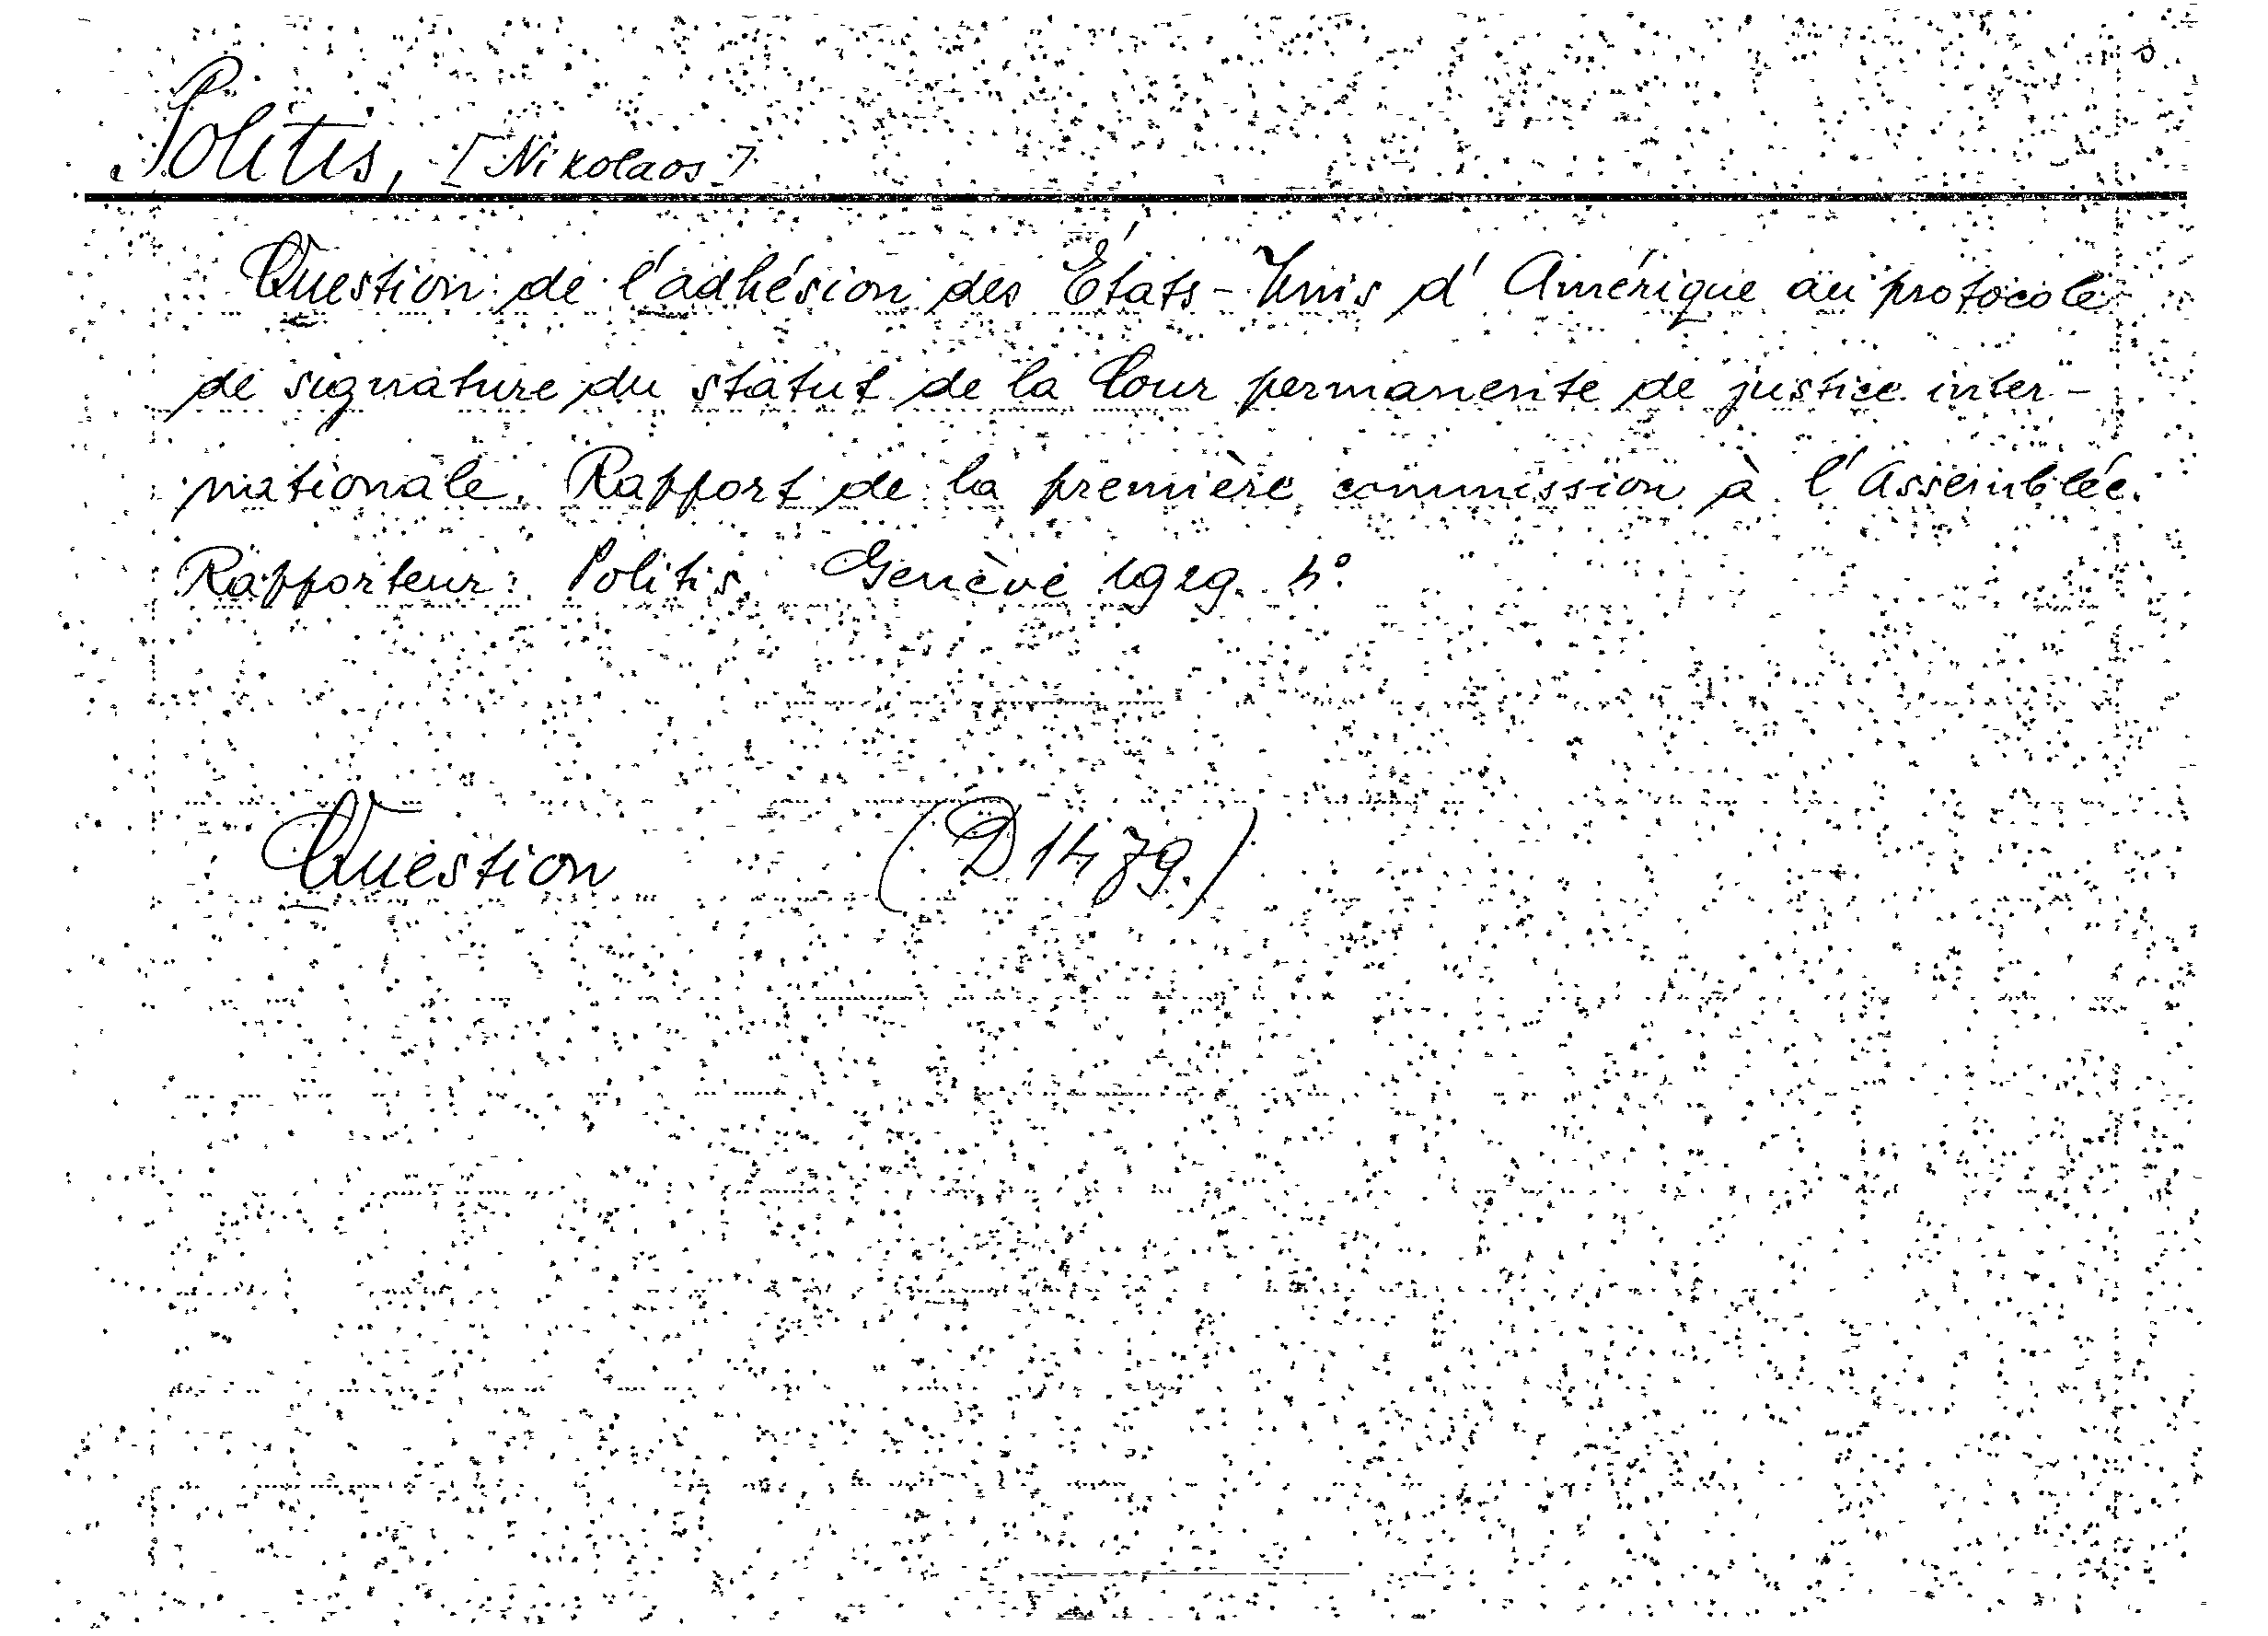 Politis, [Nikolaos]
Question de l'adhésion des États-Unis d'Amérique au protocole
de signature du statut de la Cour permanente de justice inter-
nationale. Rapport de la première commission à l'Assemblée.
Rapporteur: Politis. Genève 1929. 4°.
Question (D 1479.)